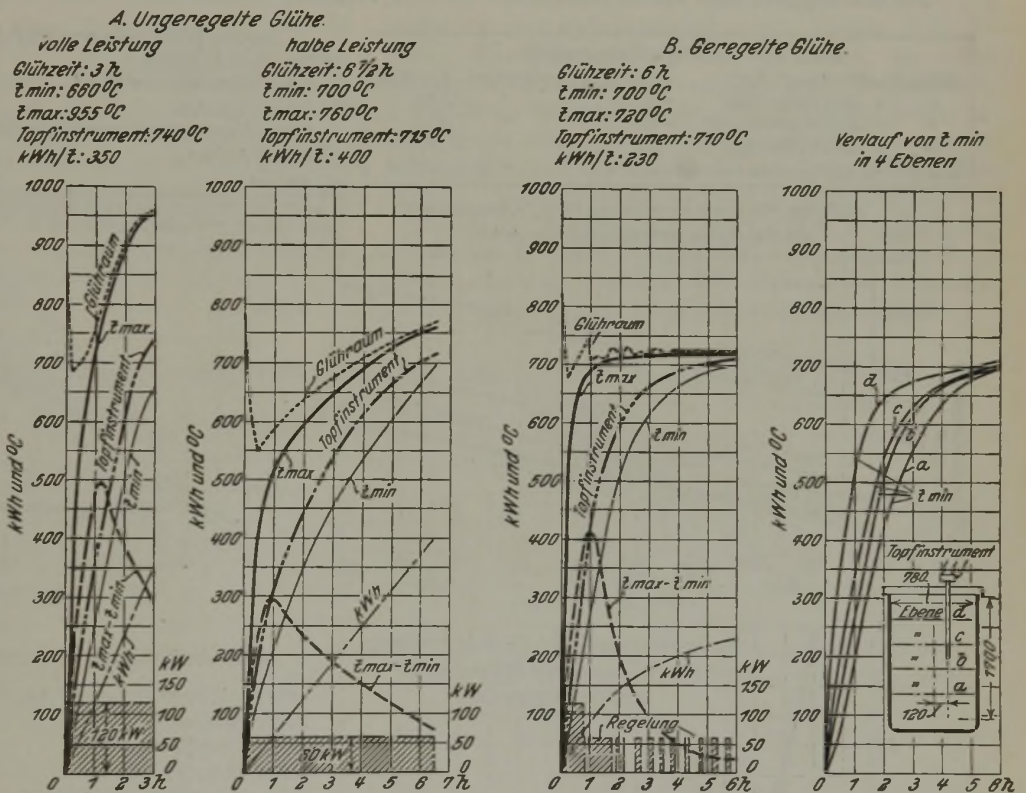 A. Ungeregelte Glühe.
volle Leistung
Glühzeit: 3 h
t min: 660 °C
t max: 955 °C
Topfinstrument: 740 °C
kWh/t: 350
halbe Leistung
Glühzeit: 6 1/2 h
t min: 700 °C
t max: 760 °C
Topfinstrument: 715 °C
kWh/t: 400
B. Geregelte Glühe.
Glühzeit: 6 h
t min: 700 °C
t max: 720 °C
Topfinstrument: 710 °C
kWh/t: 230
Verlauf von t min
in 4 Ebenen
kWh und °C
1000
900
800
700
600
500
400
300
200
100
0
Glühraum
t max
Topfinstrument
t min
t max-t min
kWh
kW
150
100
50
0
120 kW
0 1 2 3 h
kWh und °C
1000
900
800
700
600
500
400
300
200
100
Glühraum
t max
Topfinstrument
t min
kWh
t max-t min
kW
150
100
50
0
60 kW
0 1 2 3 4 5 6 7 h
kWh und °C
1000
900
800
700
600
500
400
300
200
100
Glühraum
t max
Topfinstrument
t min
t max-t min
kWh
Regelung
kW
150
100
50
0
0 1 2 3 4 5 6 h
kWh und °C
1000
900
800
700
600
500
400
300
200
100
d
c
b
a
t min
Topfinstrument
780
Ebene d
" c
" b
" a
120
1900
0 1 2 3 4 5 6 h